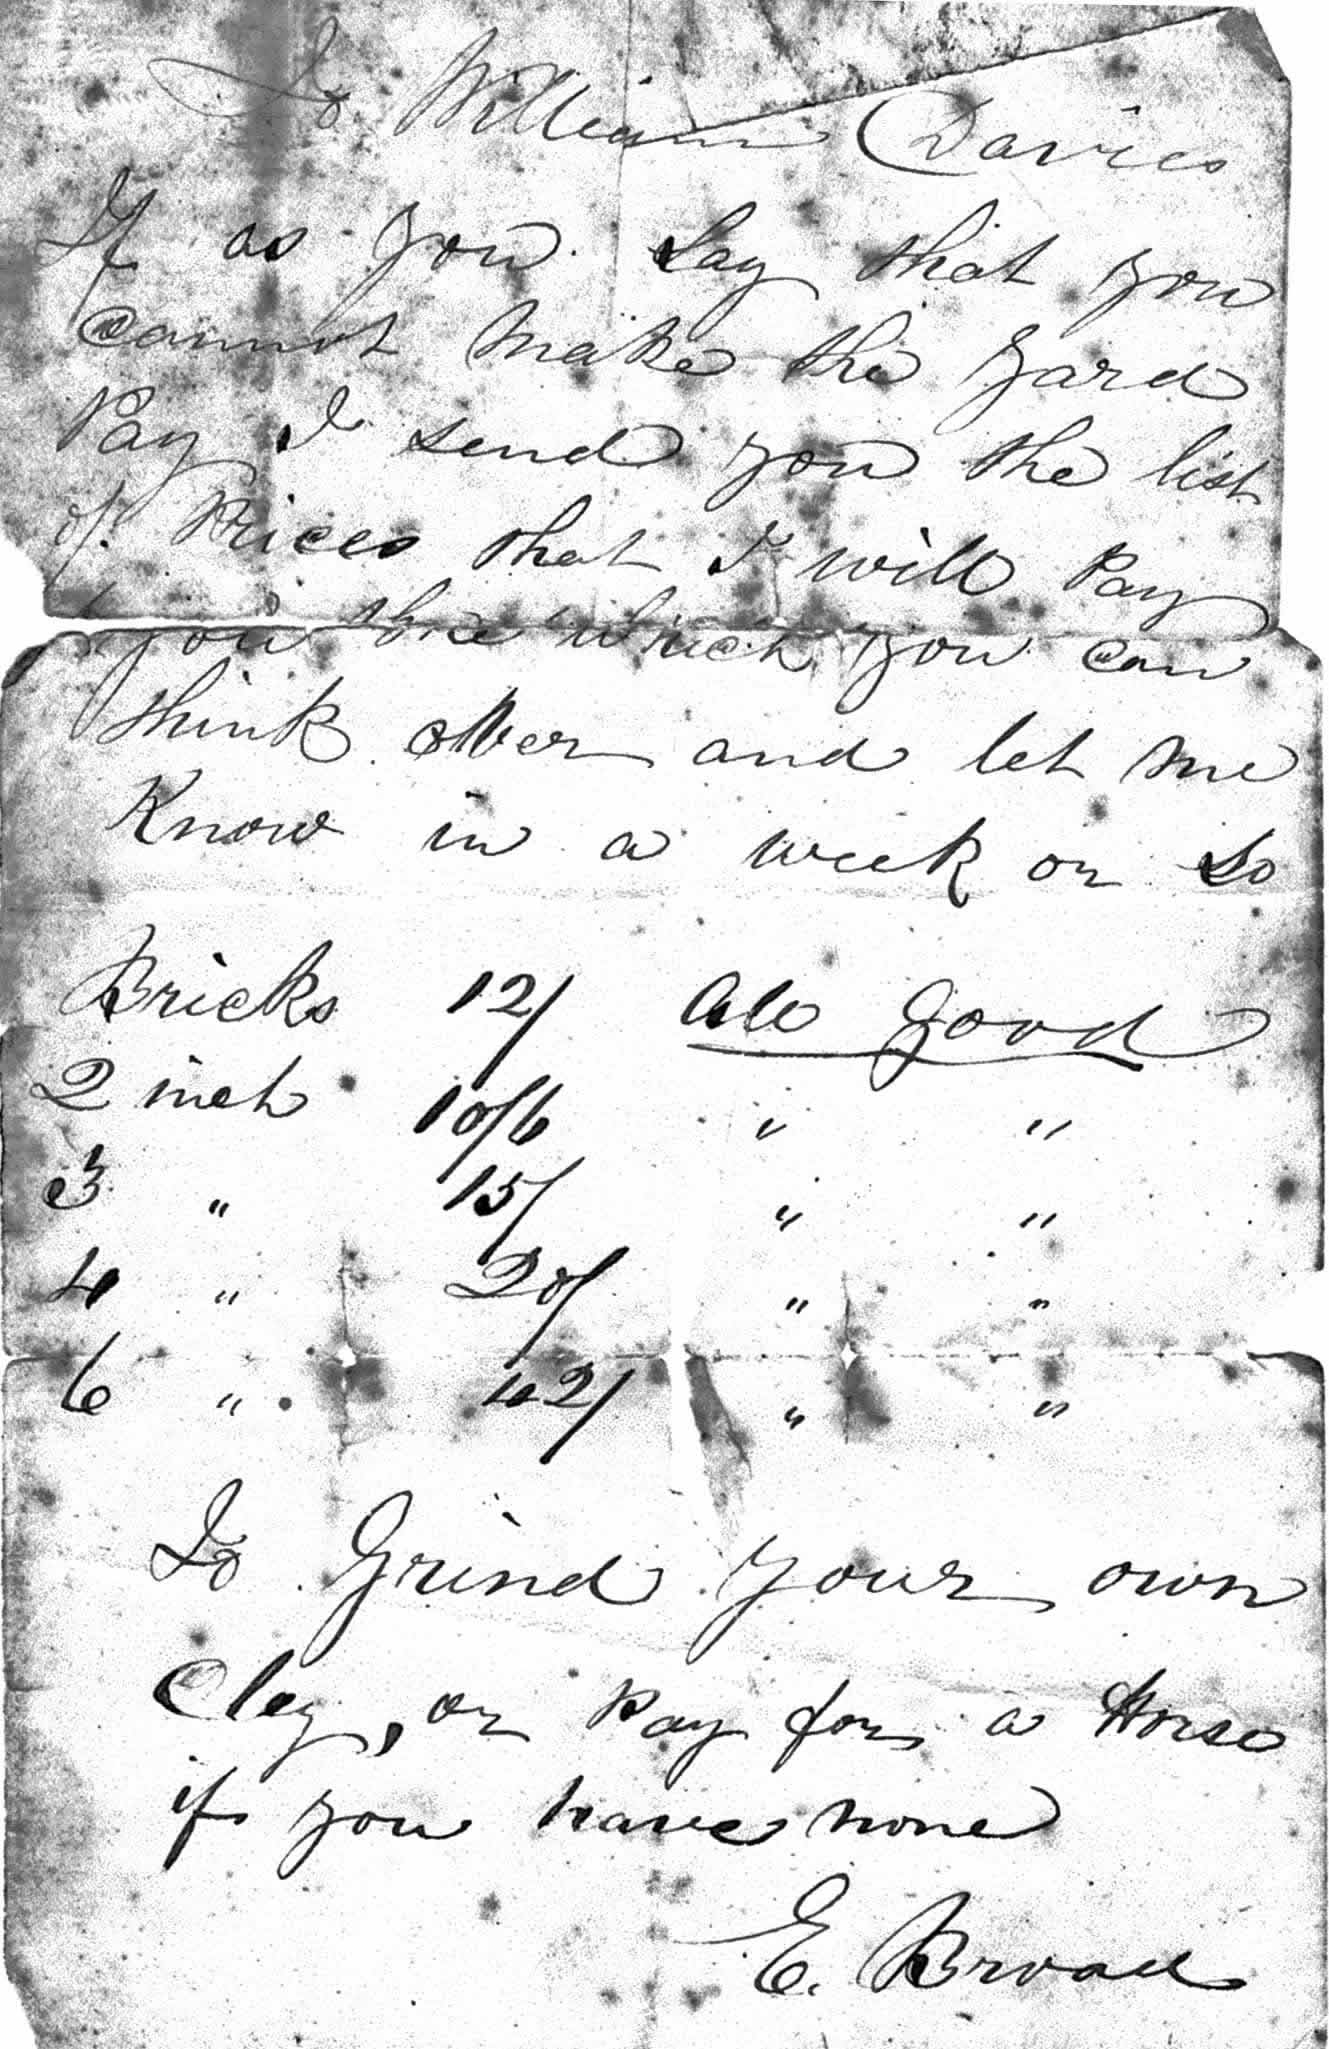 To William Davies
If as you say that you
cannot make the Yard
Pay I send you the list
of Prices that I will Pay
you the which you can
think over and let me
Know in a week or so
Bricks 12/ All Good
2 inch 10/6 " "
3 " 15/ " "
4 " 20/ " "
6 " 42/ " "
To Grind your own
Clay, or Pay for a Horse
if you have none
E. Broad